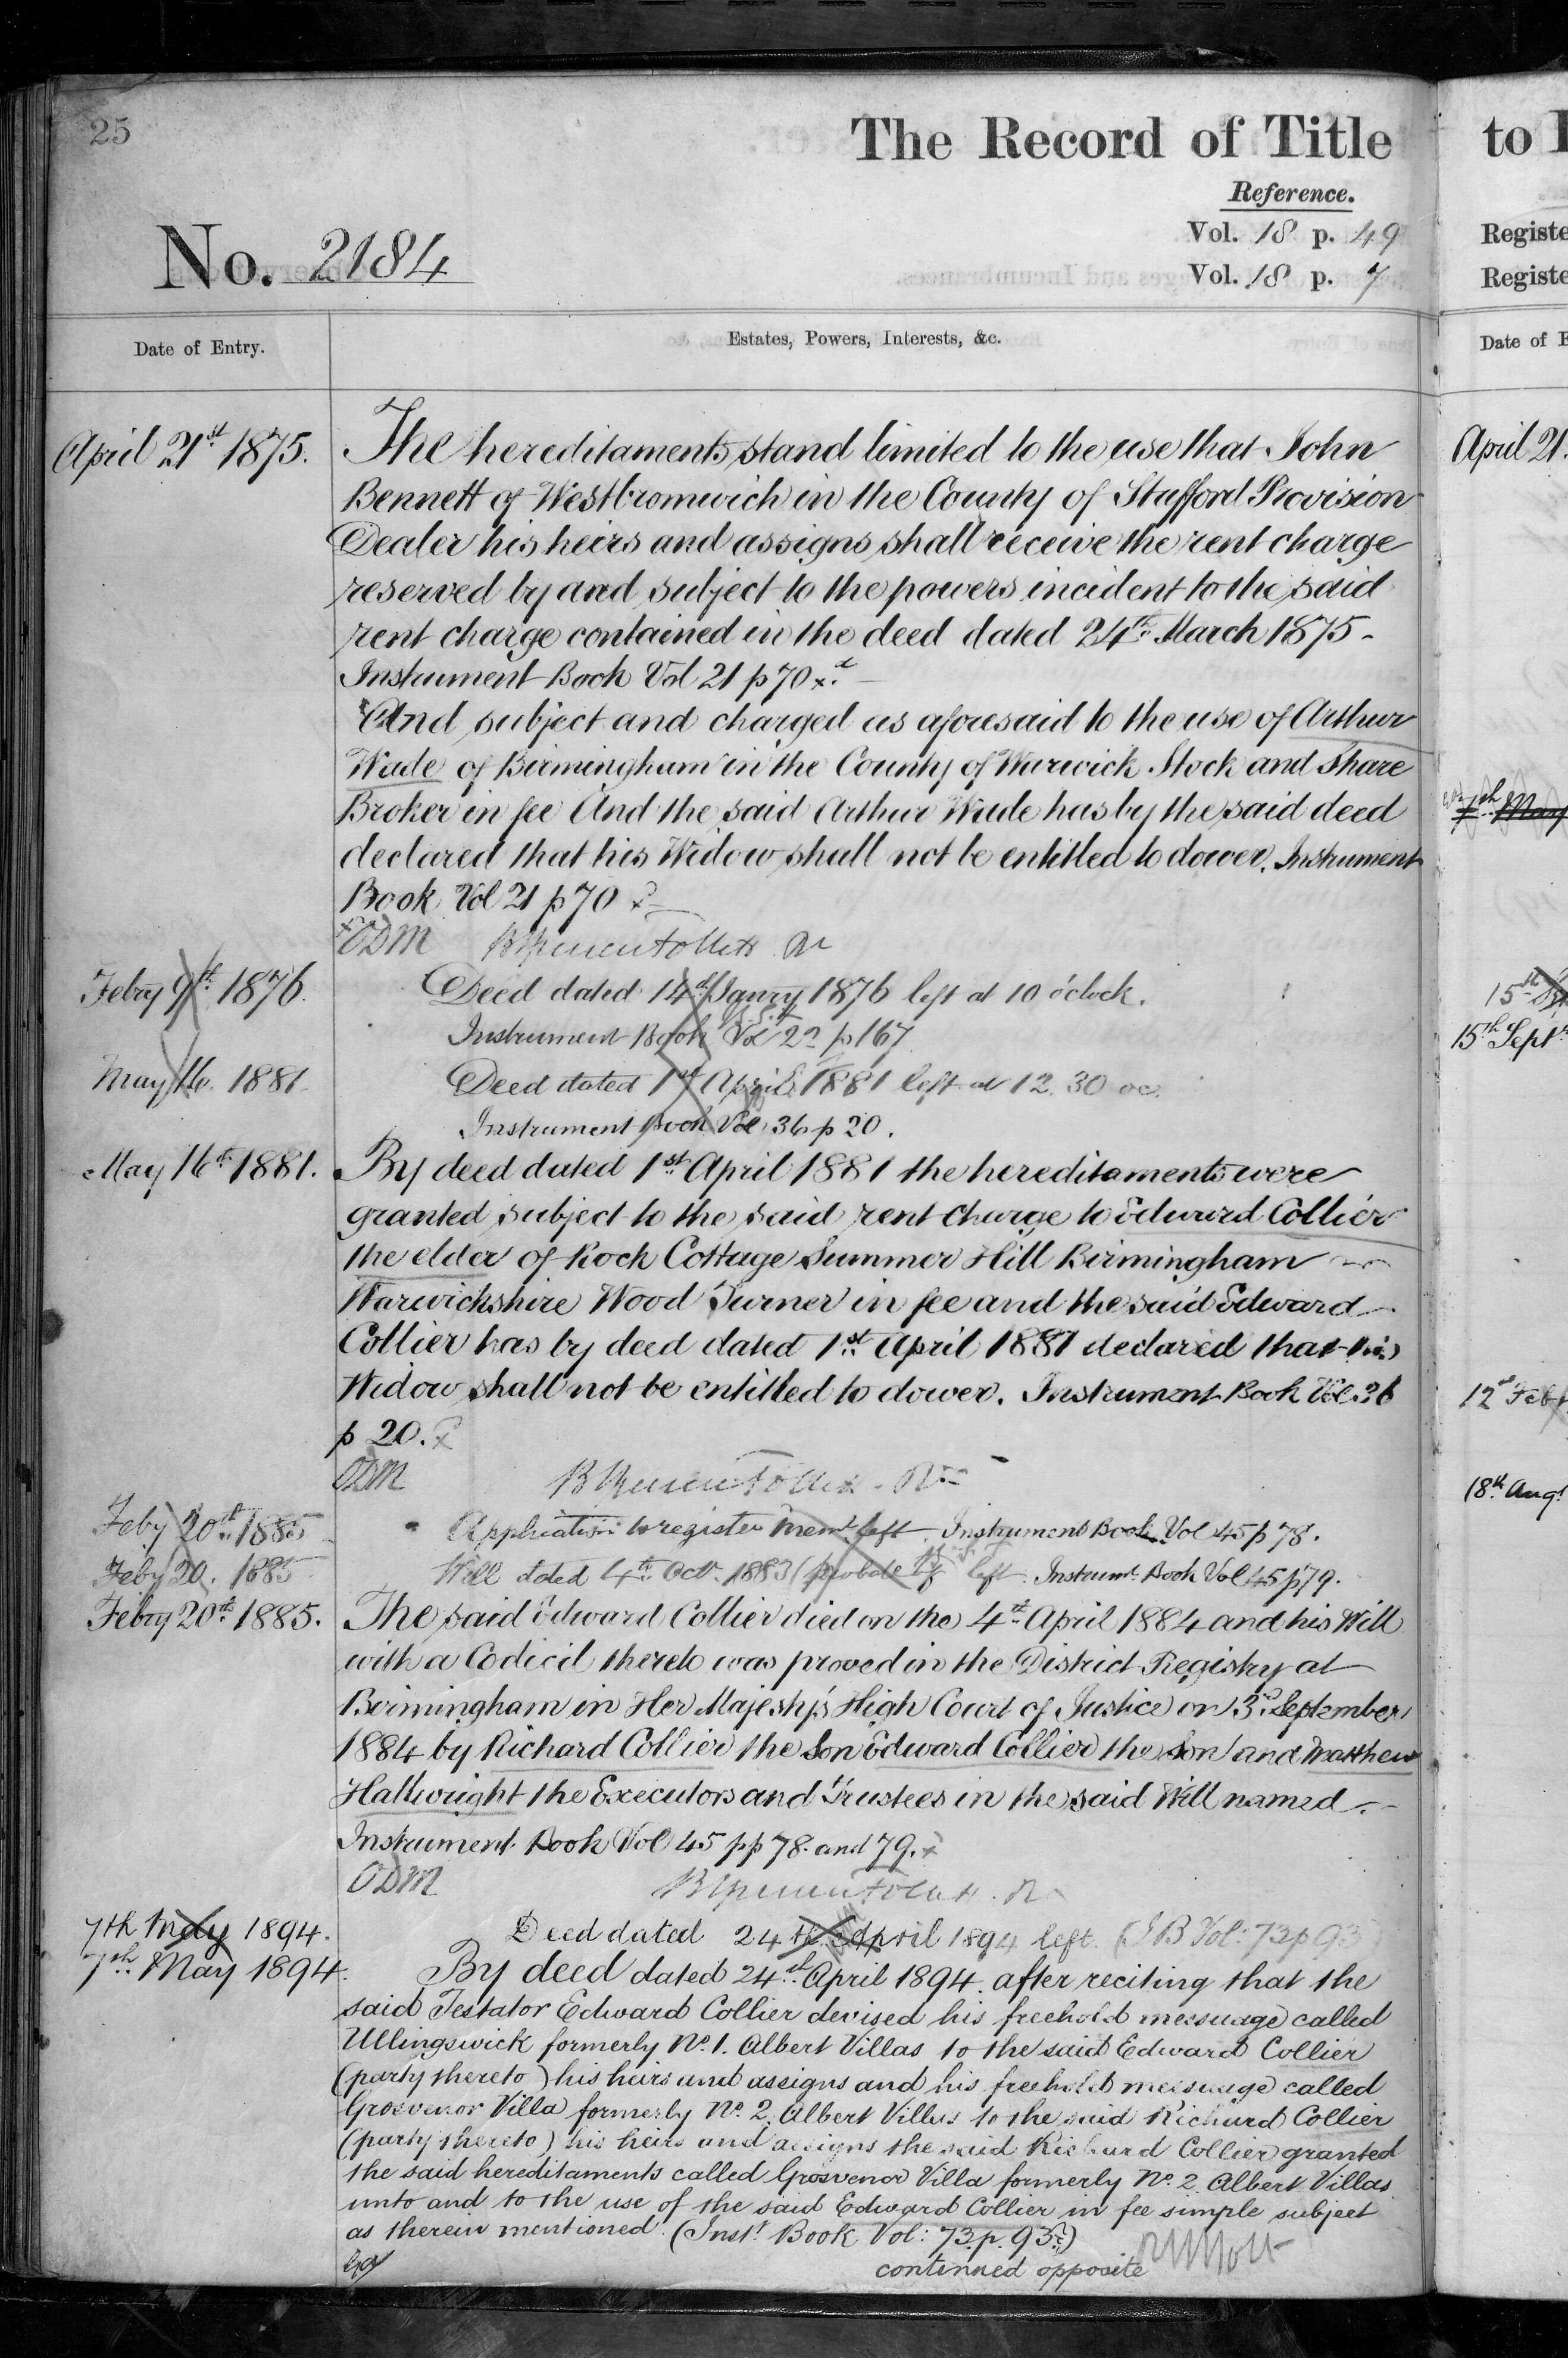 25
The Record of Title
Reference.
No. 2184
Vol. 18 p. 49
Vol. 18 p. 7
Date of Entry.
Estates, Powers, Interests, &c.
April 21st 1875.
The hereditaments stand limited to the use that John
Bennett of Westbromwich in the County of Stafford Provision
Dealer his heirs and assigns shall receive the rent charge
reserved by and subject to the powers incident to the said
rent charge contained in the deed dated 24th March 1875 -
Instrument Book Vol 21 p 70
And subject and charged as aforesaid to the use of Arthur
Wade of Birmingham in the County of Warwick Stock and Share
Broker in fee And the said Arthur Wade has by the said deed
declared that his Widow shall not be entitled to dower. Instrument
Book Vol 21 p 70
ODM
Febry 9th 1876.
Deed dated 14th Janry 1876 left at 10 o'clock.
Instrument Book Vol 22 p 167
May 16. 1881
Deed dated 1st April 1881 left at 12.30 oc.
Instrument Book Vol 36 p 20.
May 16th 1881.
By deed dated 1st April 1881 the hereditaments were
granted subject to the said rent charge to Edward Collier
the elder of Rock Cottage Summer Hill Birmingham
Warwickshire Wood Turner in fee and the said Edward
Collier has by deed dated 1st April 1881 declared that his
Widow shall not be entitled to dower. Instrument Book Vol 36
p 20.
ODM
Feby 20th 1885
Application to register left Instrument Book Vol 45 p 78.
Feby 20. 1885
Will dated 4th Octr. 1883 (probate of) left Instrumt Book Vol 45 p 79.
Febry 20th 1885.
The said Edward Collier died on the 4th April 1884 and his Will
with a Codicil thereto was proved in the District Registry at
Birmingham in Her Majesty's High Court of Justice on 3rd September
1884 by Richard Collier the Son Edward Collier the Son and Matthew
Hallwright the Executors and Trustees in the said Will named.
Instrument Book Vol 45 pp 78. and 79.
ODM
7th May 1894.
Deed dated 24th April 1894 left. (I B Vol: 73 p 93)
7th May 1894.
By deed dated 24th April 1894. after reciting that the
said Testator Edward Collier devised his freehold messuage called
Ullingswick formerly No. 1. Albert Villas to the said Edward Collier
(party thereto) his heirs and assigns and his freehold messuage called
Grosvenor Villa formerly No. 2. Albert Villas to the said Richard Collier
(party thereto) his heirs and assigns the said Richard Collier granted
the said hereditaments called Grosvenor Villa formerly No. 2. Albert Villas
unto and to the use of the said Edward Collier in fee simple subject
as therein mentioned. (Inst. Book Vol: 73. p. 93.)
continued opposite
to
Registe
Registe
Date of E
April 21.
7th May
15th
15th Sept
12th Feb
18th Augt